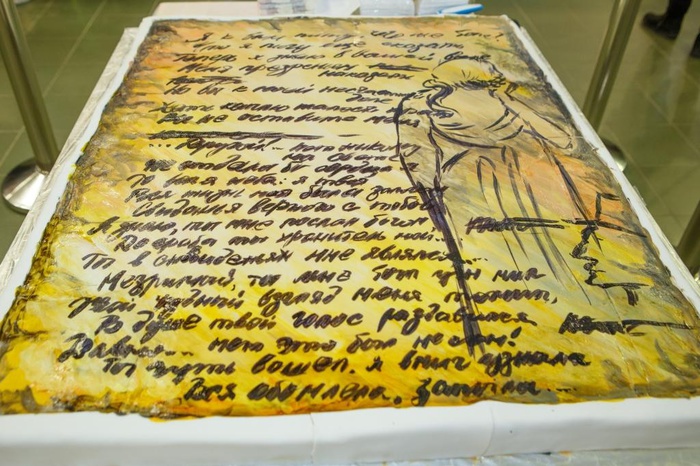 Я к вам пишу чего же боле?
Что я могу еще сказать
Теперь я знаю в вашей
наказать
Но вы к моей несчастной
доле
Хоть каплю жалости
Вы не оставите меня
Другой!... нет никому
на свете
не отдала бы сердца я
То воля неба: я твоя
Вся жизнь моя была залогом
Свиданья верного с тобой
Я знаю, ты мне послан богом
До гроба ты хранитель мой...
Ты в сновиденьях мне являлся...
Незримый, ты мне был уж мил
Твой чудный взгляд меня томил,
В душе твой голос раздавался
Давно... нет это был не сон!
Ты чуть вошел, я вмиг узнала
Вся обомлела, запылала...